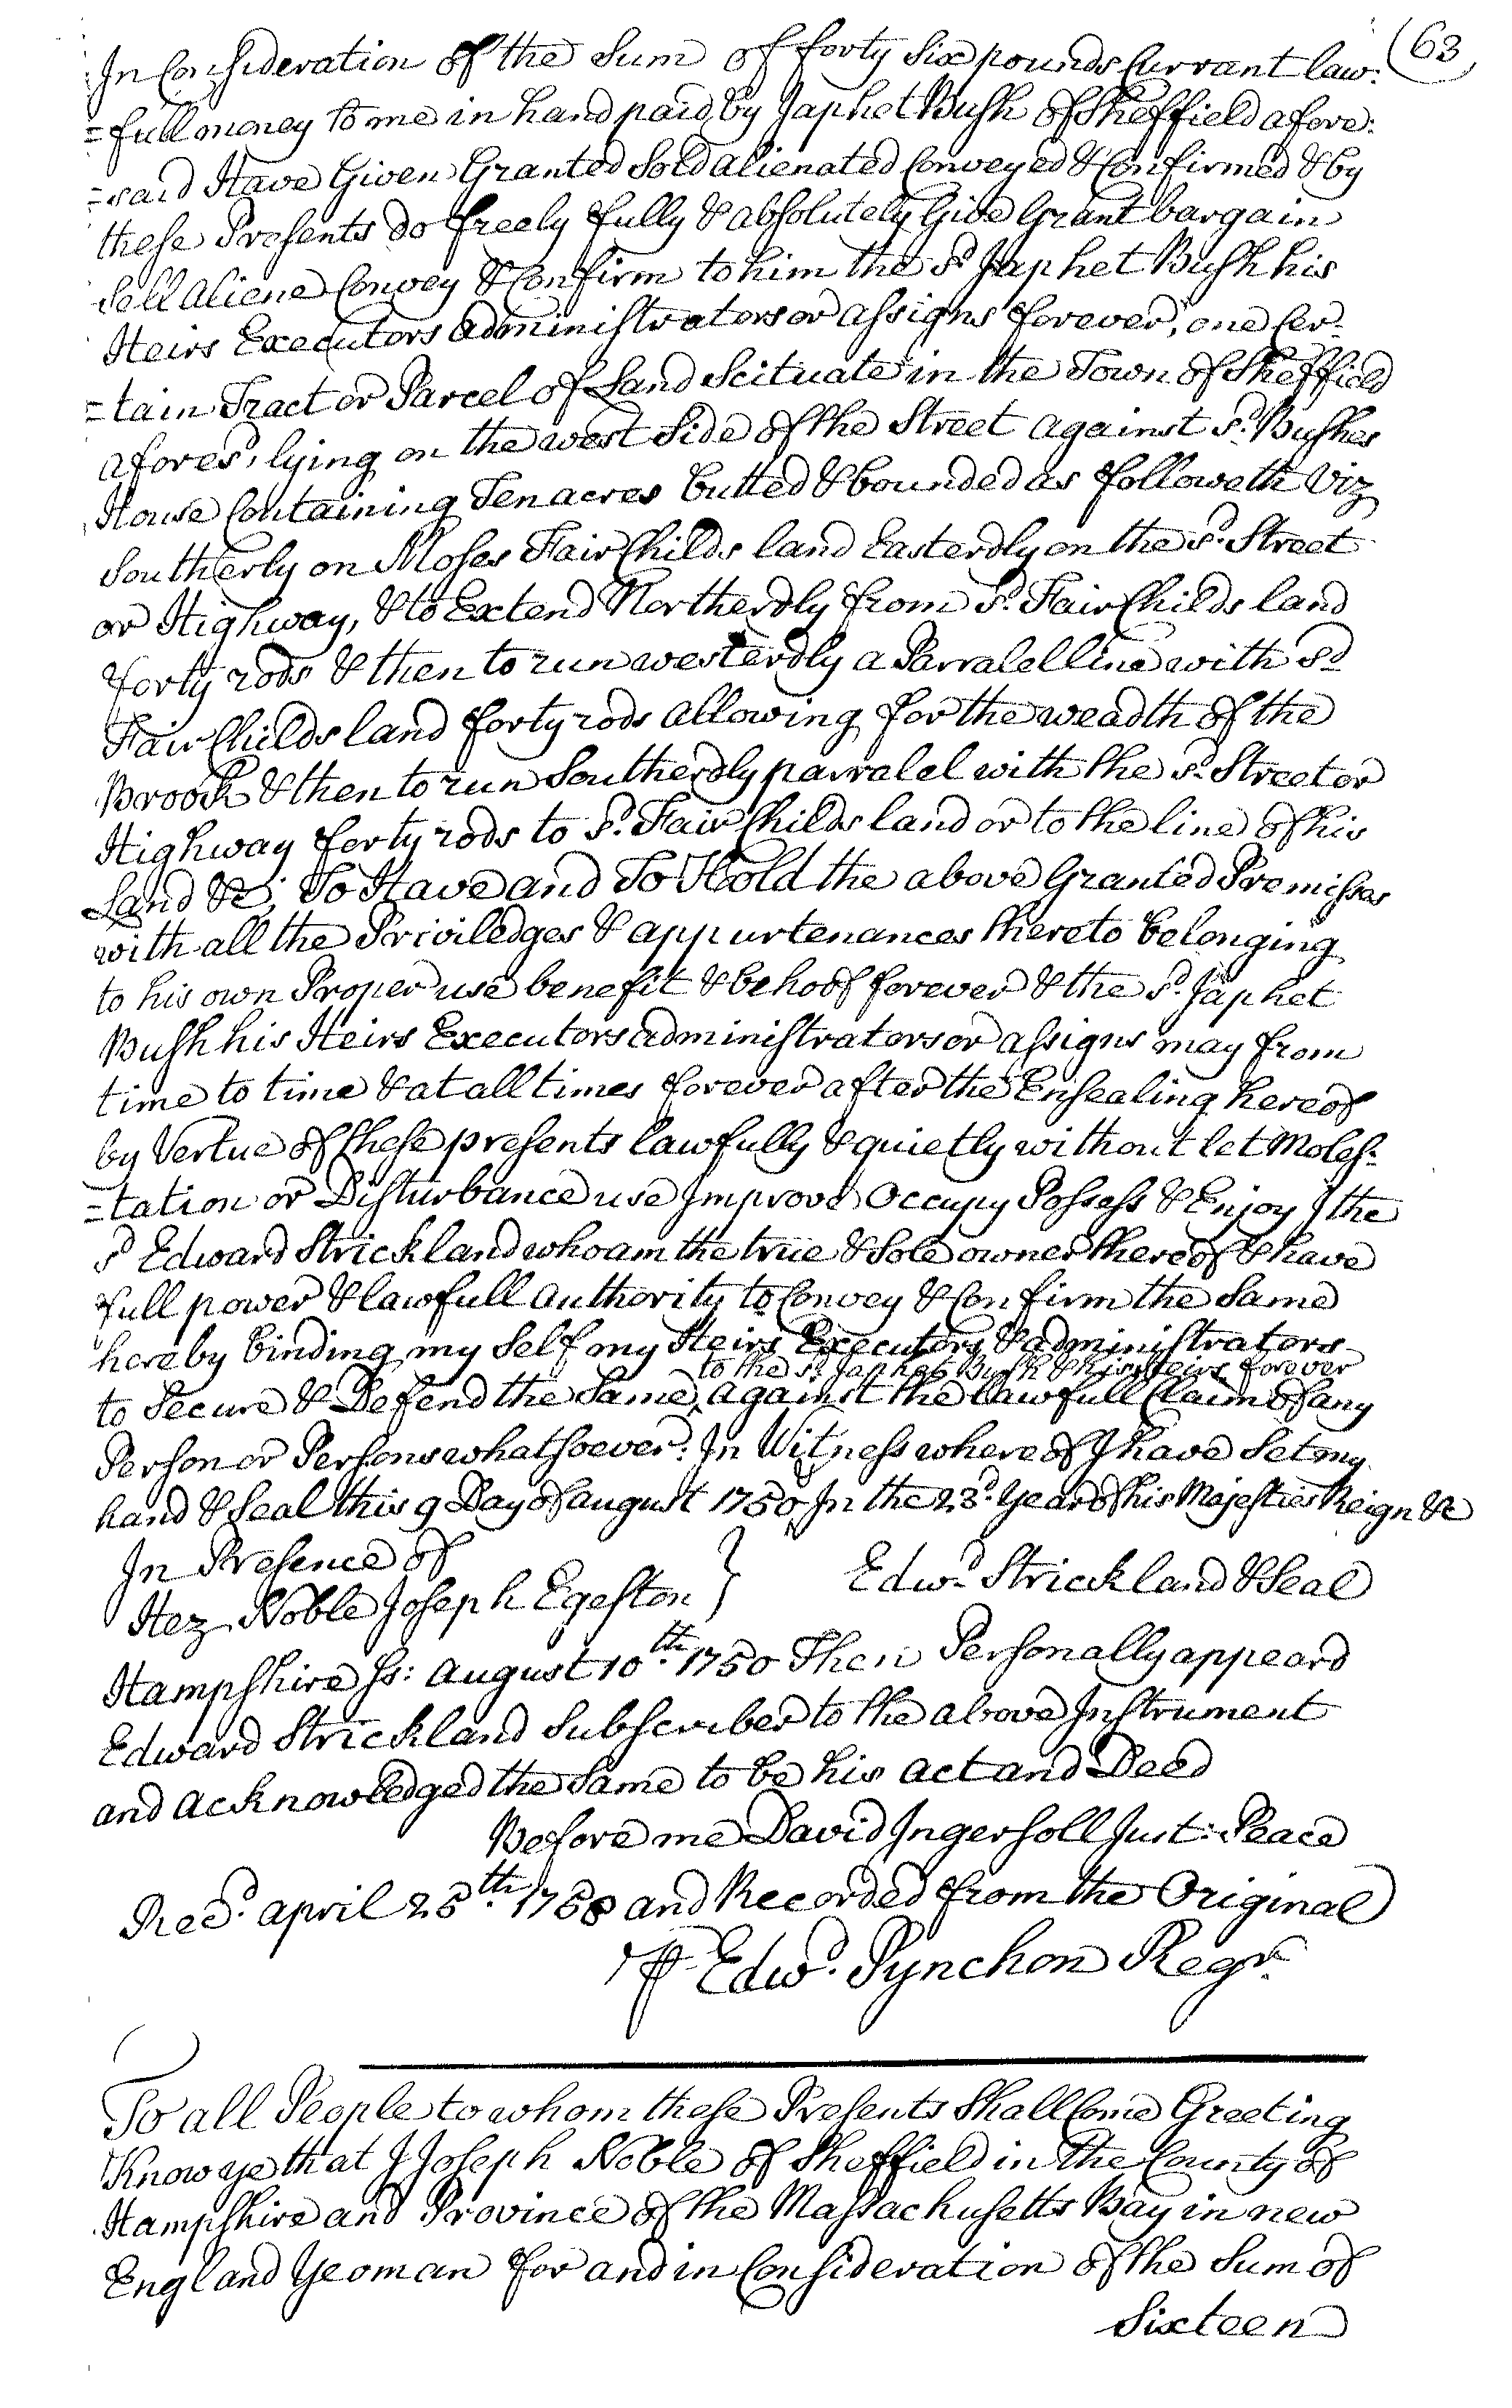 (63
In Consideration of the Sum of forty Six pounds Currant law:
=full money to me in hand paid by Japhet Bush of Sheffield afore:
=said Have Given Granted Sold alienated Conveyed & Confirmed & by
these Presents do freely fully & absolutely Give Grant bargain
Sell aliene Convey & Confirm to him the sd. Japhet Bush his
Heirs Executors administrators or assigns forever, one Cer-
=tain Tract or Parcel of Land Scituate in the Town of Sheffield
aforesd, lying on the west Side of the Street against sd. Bushes
House Containing Ten acres butted & bounded as followeth Viz
Southerly on Moses FairChilds land Easterdly on the sd. Street
or Highway, & to Extend Northerdly from sd. FairChilds land
forty rods & then to run westerdly a Parralel line with sd
FairChilds land forty rods allowing for the weadth of the
Brook & then to run Southerdly parralel with the sd. Street or
Highway forty rods to sd. FairChilds land or to the line of his
Land &c; To Have and To Hold the above Granted Premisses
with all the Priviledges & appurtenances thereto belonging
to his own Proper use benefit & behoof forever & the sd. Japhet
Bush his Heirs Executors administrators or assigns may from
time to time & at all times forever after the Ensealing hereof
by Vertue of these presents lawfully & quietly without let Moles-
=tation or Disturbance use Improve Occupy Possess & Enjoy I the
sd Edward Strickland who am the true & Sole owner thereof & have
full power & lawfull authority to Convey & Confirm the Same
hereby binding my Self my Heirs Executors & administrators
to the sd. Japhet Bush & his Heirs forever
to Secure & Defend the Same, against the lawfull Claim of any
Person or Persons whatsoever. In Witness whereof I have Set my
hand & Seal this 9 Day of august 1750 In the 23d. Year of his Majesties Reign &c
In Presence of
Hez. Noble Joseph Egeston } Edwd. Strickland & Seal
Hampshire ss: august 10th. 1750 Then Personally appeard
Edward Strickland Subscriber to the above Instrument
and acknowledged the Same to be his act and Deed
Before me David Ingersoll Just: Peace
Recd. april 25th. 1758 and Recorded from the Original
⅌ Edwd. Pynchon Regr.
To all People to whom these Presents Shall Come Greeting
Know ye that I Joseph Noble of Sheffield in the County of
Hampshire and Province of the Massachusetts Bay in new
England Yeoman for and in Consideration of the Sum of
Sixteen